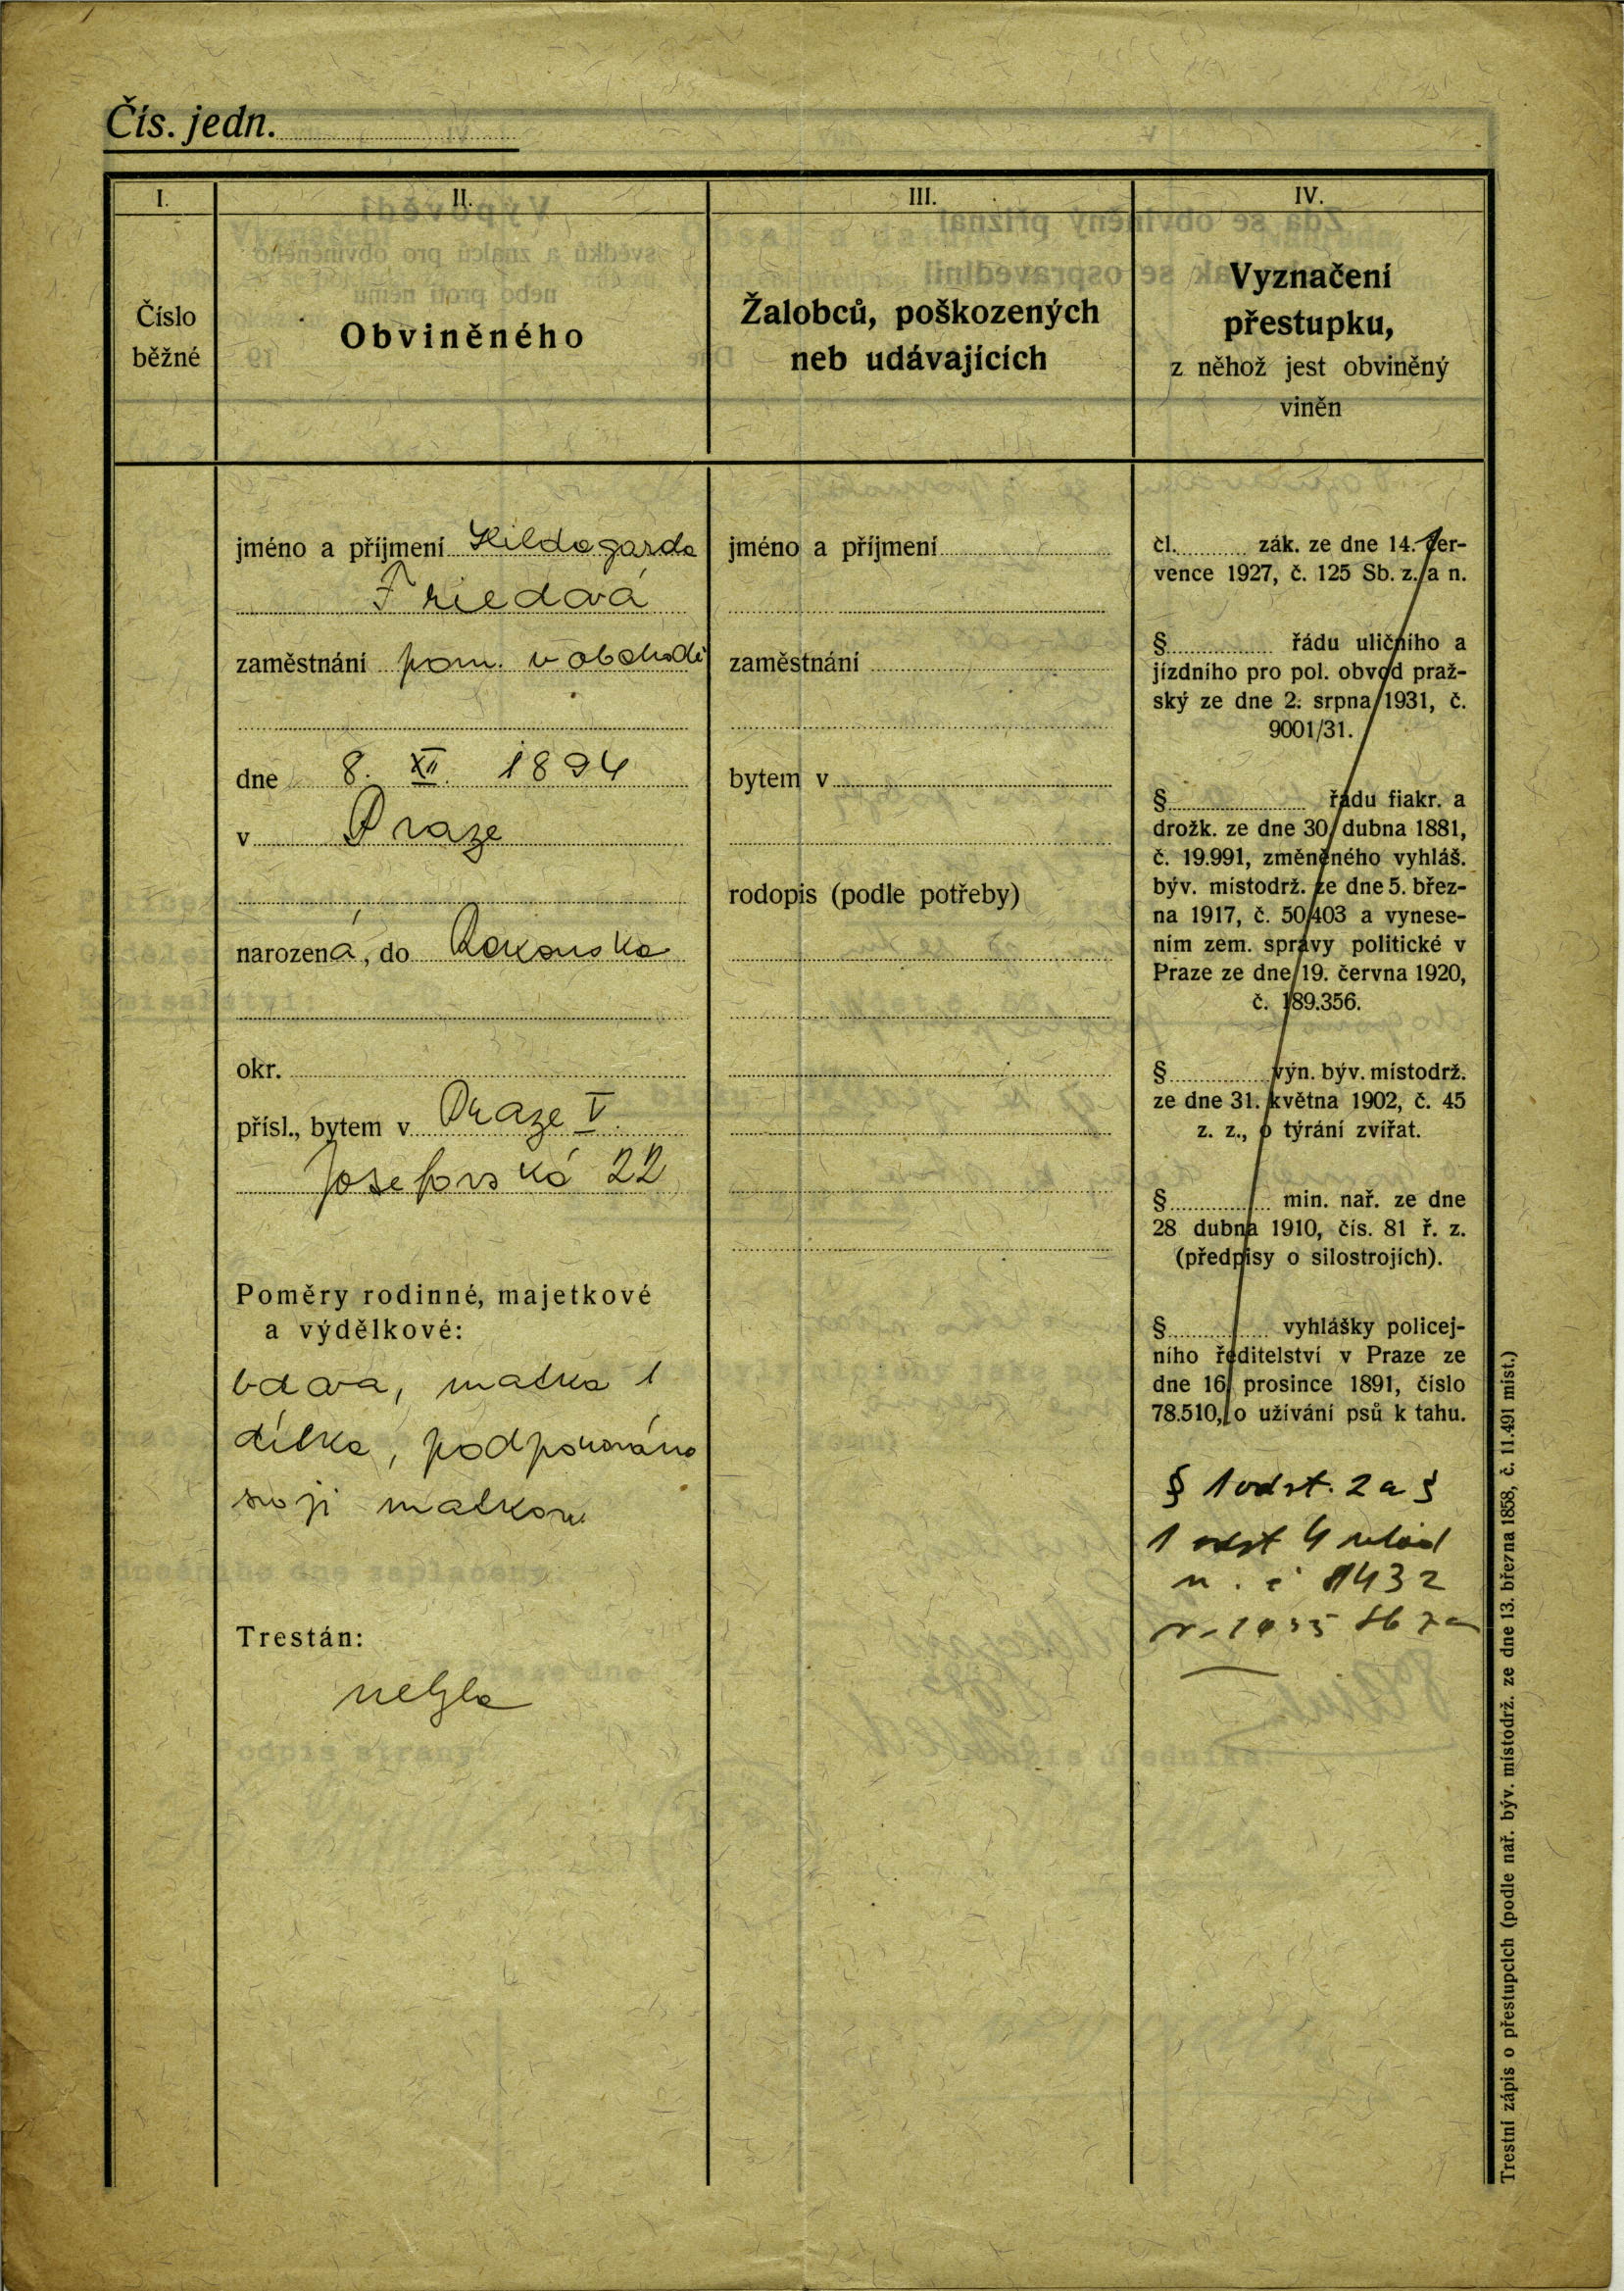 Čís. jedn.
I.
II.
III.
IV.
Číslo
běžné
Obviněného
Žalobců, poškozených
neb udávajících
Vyznačení
přestupku,
z něhož jest obviněný
viněn
jméno a příjmení Hildegarda
Friedová
zaměstnání pom. v obchodě
dne 8. XII. 1894
v Praze
narozená, do Rakouska
okr.
přísl., bytem v Praze V.
Josefovská 22
Poměry rodinné, majetkové
a výdělkové:
vdova, matka 1
dítka, podporována
svojí matkou
Trestán:
nebyla
jméno a příjmení
zaměstnání
bytem v
rodopis (podle potřeby)
čl. zák. ze dne 14. čer-
vence 1927, č. 125 Sb. z. a n.
§ řádu uličního a
jízdního pro pol. obvod praž-
ský ze dne 2. srpna 1931, č.
9001/31.
§ řádu fiakr. a
drožk. ze dne 30. dubna 1881,
č. 19.991, změněného vyhláš.
býv. místodrž. ze dne 5. břez-
na 1917, č. 50.403 a vynese-
ním zem. správy politické v
Praze ze dne 19. června 1920,
č. 189.356.
§ výn. býv. místodrž.
ze dne 31. května 1902, č. 45
z. z., o týrání zvířat.
§ min. nař. ze dne
28 dubna 1910, čís. 81 ř. z.
(předpisy o silostrojích).
§ vyhlášky policej-
ního ředitelství v Praze ze
dne 16. prosince 1891, číslo
78.510, o užívání psů k tahu.
§ 1 odst. 2 a §
1 odst 4 vlád
n. č
r. 1935 Sb z a
Trestní zápis o přestupcích (podle nař. býv. místodrž. ze dne 13. března 1858, č. 11.491 míst.)